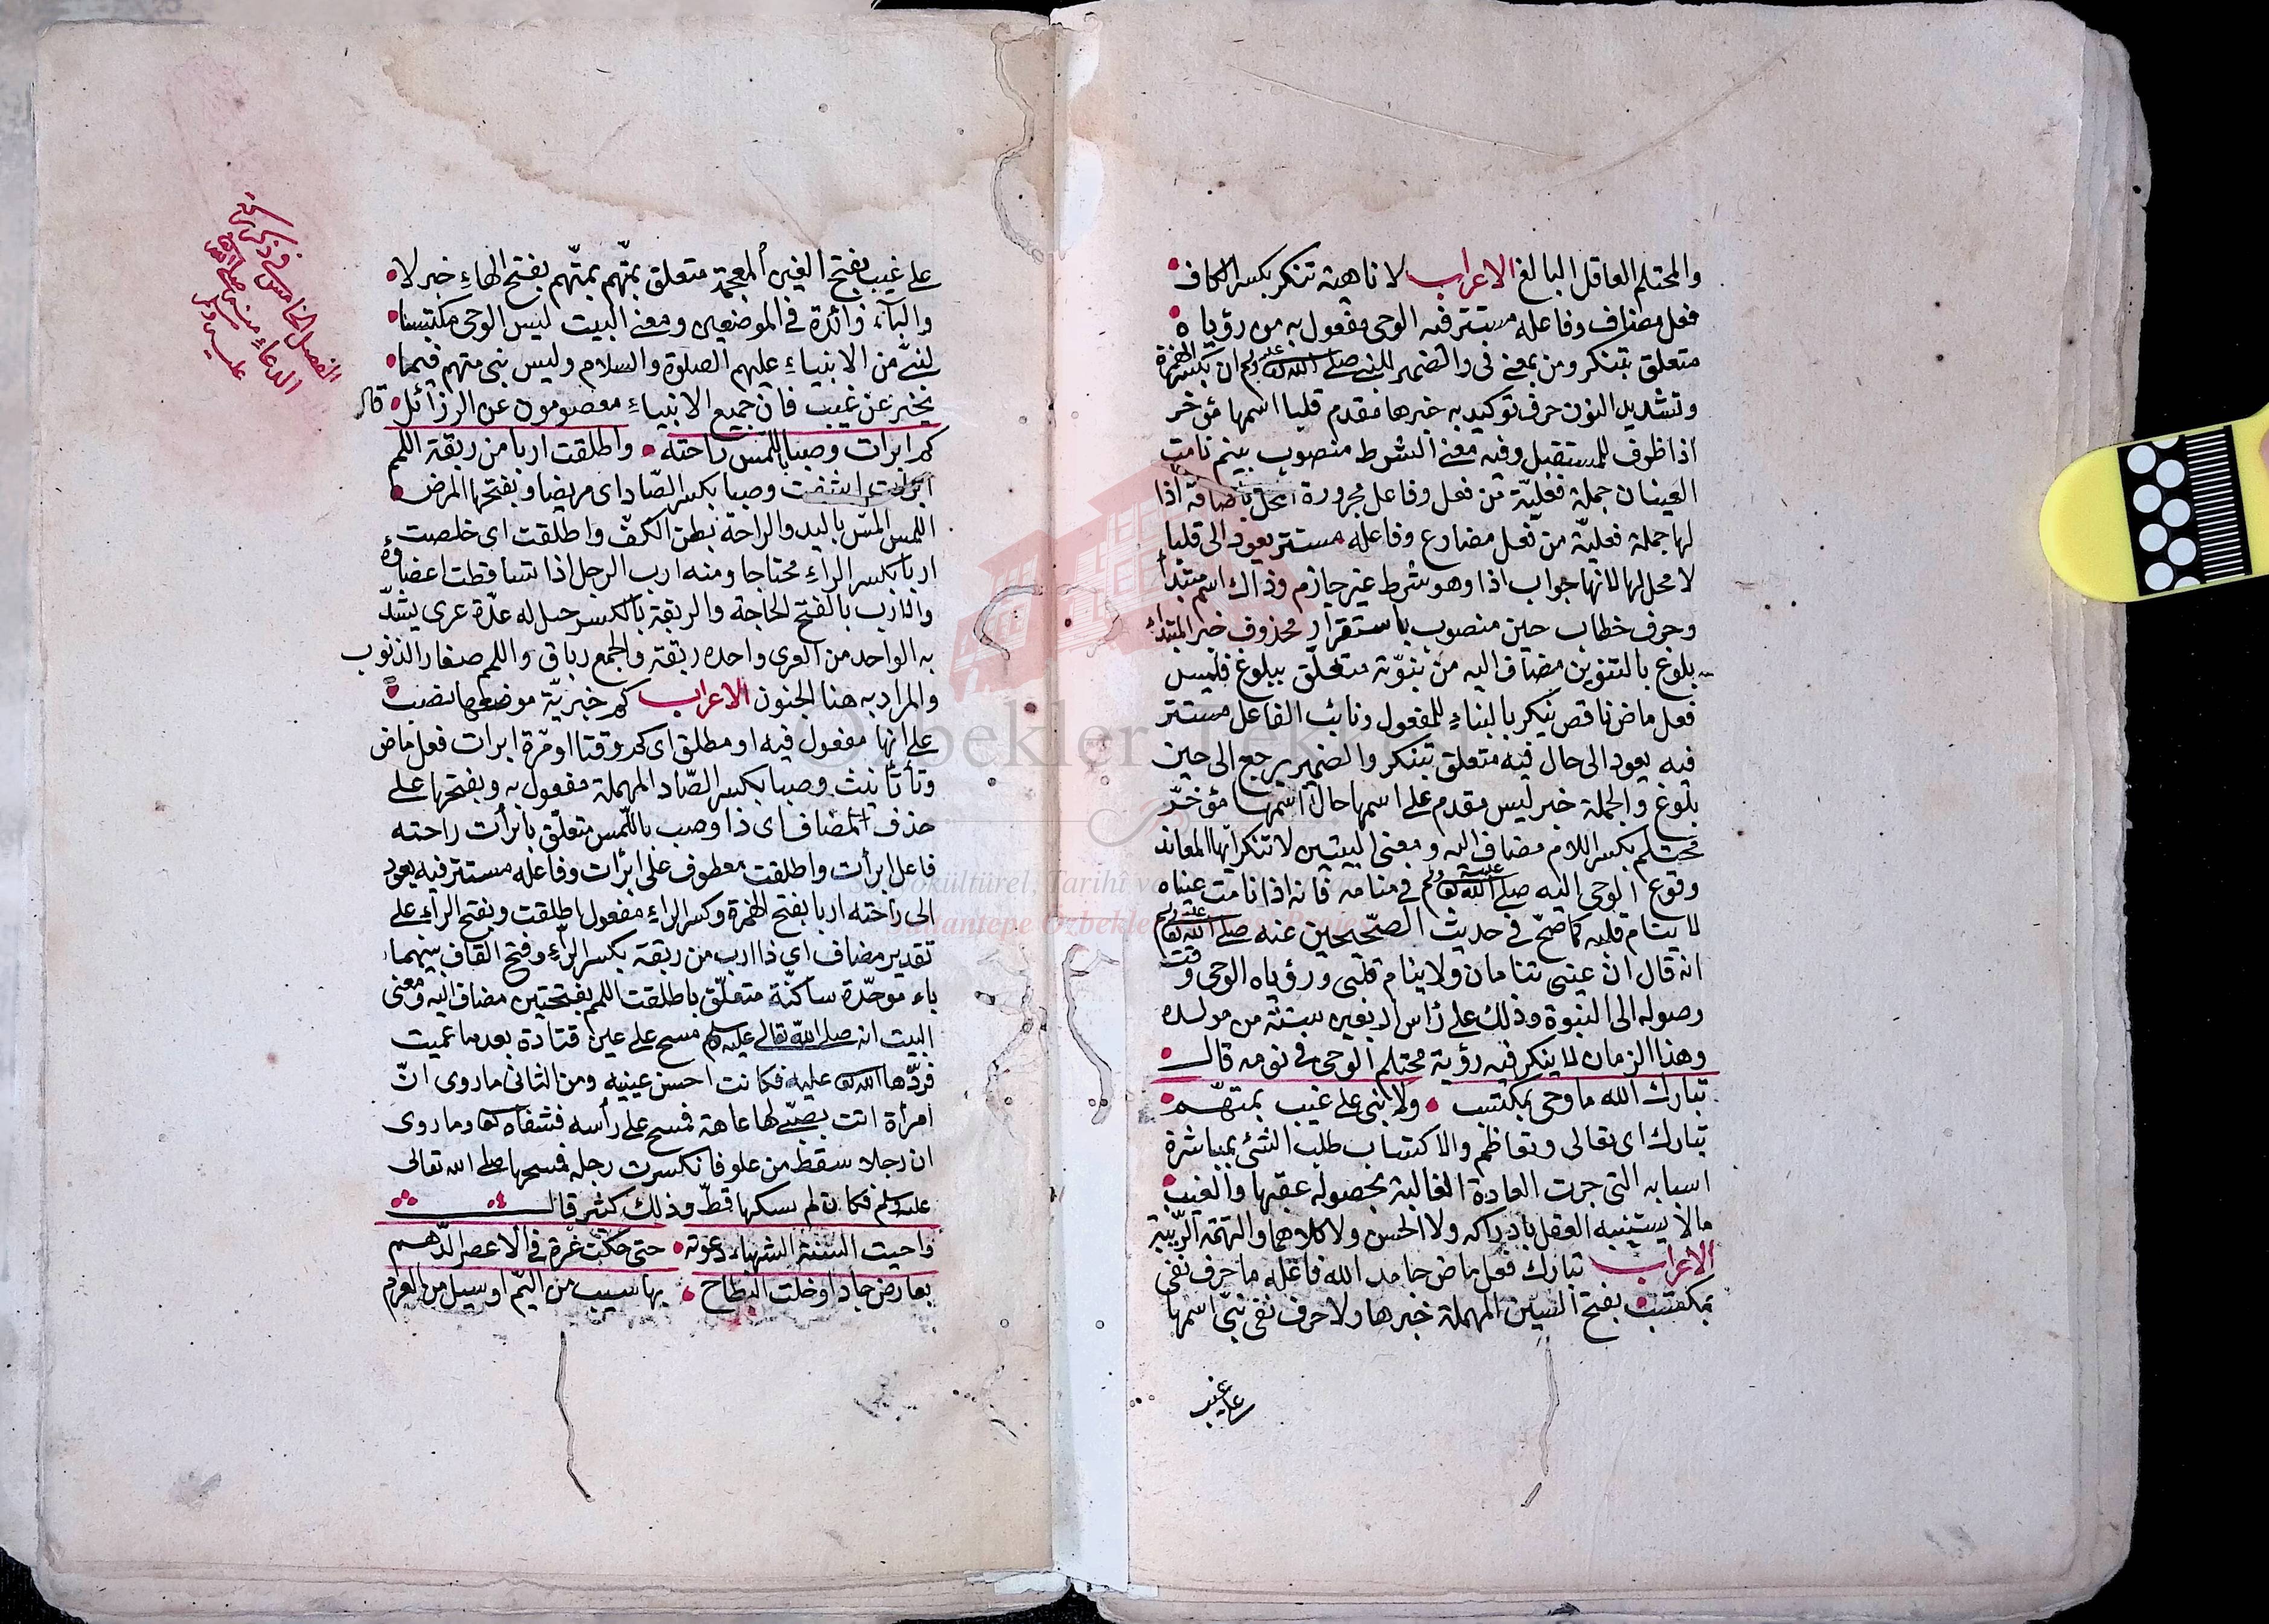 والمحتلم العاقل البالغ الاعراب لا ناهية تنكر بكسر الكاف
فعل مضارف وفاعله مستتر فيه الوحي مفعول به من رؤياه
متعلق بتنكر ومن بمعنى في والضمير للنبي صلى الله تعالى عليه وسلم ان بكسر الهمزة
وتشديد النون حرف توكيد به خبرها مقدم قلبا اسمها مؤخر
اذا ظرف للمستقبل وفيه معنى الشرط منصوب بينم نامت
العينان جملة فعليّة من فعل وفاعل مجرورة المحل باضافة اذا
لها جملة فعليّة من فعل مضارع وفاعله مستتر يعود الى قلبا
لا محل لها لانها جواب اذا وهو شرط غير جازم وذاك اسم مبتدأ
وحرف خطاب حين منصوب باستقرار محذوف خبر المبتداء
بلوغ بالتنوين مضاف اليه من نبوّته متعلق ببلوغ فليس
فعل ماض ناقص ينكر بالبناء للمفعول ونائب الفاعل مستتر
فيه يعود الى حال فيه متعلق بتنكر والضمير يرجع الى حين
بلوغ والجملة خبر ليس مقدم على اسمها حال اسمها مؤخّر
محتلم بكسر اللام مضاف اليه ومعنى البيتين لا تنكر ايّها المعاند
وقوع الوحي اليه صلى الله تعالى عليه وسلم في منامه فانه اذا نامت عيناه
لا ينام قلبه كما صحّ في حديث الصّحيحين عنه صلى الله تعالى عليه وسلم
انه قال ان عيني تنامان ولا ينام قلبي ورؤياه الوحي وقت
وصوله الى النبوة وذلك على رأس اربعين سنة من مولده
وهذا الزمان لا ينكر فيه رؤية محتلم الوحي في نومه قال
تبارك الله ما وحي بمكتسب ولا نبي على غيب بمتهّم
تبارك اى تعالى وتعاظم والاكتساب طلب الشئ بمباشرة
اسبابه التي جرت العادة الغالبة بحصوله عقبها والغيب
مالا يستبنيه العقل بادراكه ولا الحس ولا كلاهما والتهمة الرّيبة
الاعراب تبارك فعل ماض جامد الله فاعله ما حرف نفي
بمكتسب بفتح السين المهملة خبرها ولا حرف نفي نبيّ اسمها
على غيب
على غيب بفتح الغين المعجمة متعلق بمتّهم بمتّهم بفتح الهاء خبر لا
والباء زائدة في الموضعين ومعنى البيت ليس الوحي مكتسبا
لنبيّ من الانبياء عليهم الصلوة والسلام وليس نبي متهم فيما
يخبر عن غيب فان جميع الانبياء معصومون عن الرزائل قال
كم ابرات وصبا باللّمس راحته واطلقت اربا من ربقة اللمم
ابرات اشفت وصبا بكسر الصّاد اى مريضا وبفتحها المرض
اللمس المسّ باليد والراحة بطن الكفّ واطلقت اى خلصت
اربا بكسر الراء محتاجا ومنه ارب الرجل اذا تساقطت اعضاؤه
والارب بالفتح الحاجة والربقة بالكسر حبل له عدّة عرى يشدّ
به الواحد من العرى واحده ربقة والجمع رباق واللمم صغار الذنوب
والمراد به هنا الجنون الاعراب كم خبريّة موضعها نصب
على انها مفعول فيه او مطلق اى كم وقتا او مرّة ابرات فعل ماض
وتأتأنيث وصبا بكسر الصّاد المهملة مفعول به وبفتحها على
حذف المضاف اى ذا وصب باللّمس متعلّق بابرأت راحته
فاعل ابرأت واطلقت معطوف على ابرات وفاعله مستتر فيه يعود
الى راحته اربا بفتح الهمزة وكسر الراء مفعول اطلقت وبفتح الراء على
تقدير مضاف اى ذا ارب من ربقة بكسر الرّاء وفتح القاف بينهما
باء موحّدة ساكنة متعلّق باطلقت اللمم بفتحتين مضاف اليه ومعنى
البيت انه صلى الله تعالى عليه وسلم مسح على عين قتادة بعد ما عميت
فردّها الله تعالى عليه فكانت احسن عينيه ومن الثاني ما روى انّ
امرأة اتت بصبيّ لها عاهة فمسح على رأسه فشفاه كما وما روى
ان رجلا سقط من علو فانكسرت رجله فمسحها صلى الله تعالى
عليه وسلم فكان لم يسكها قطّ وذلك كثير قال
واحيت السنة الشهباء دعوته حتى حكت غرة في الاعصر الدّهم
بعارض جاد او خلت البطاح بها سيب من اليمّ او سيل من العرم
الفصل الخامس في ذكر بركة
الدعاء منه صلى الله
عليه وسلم